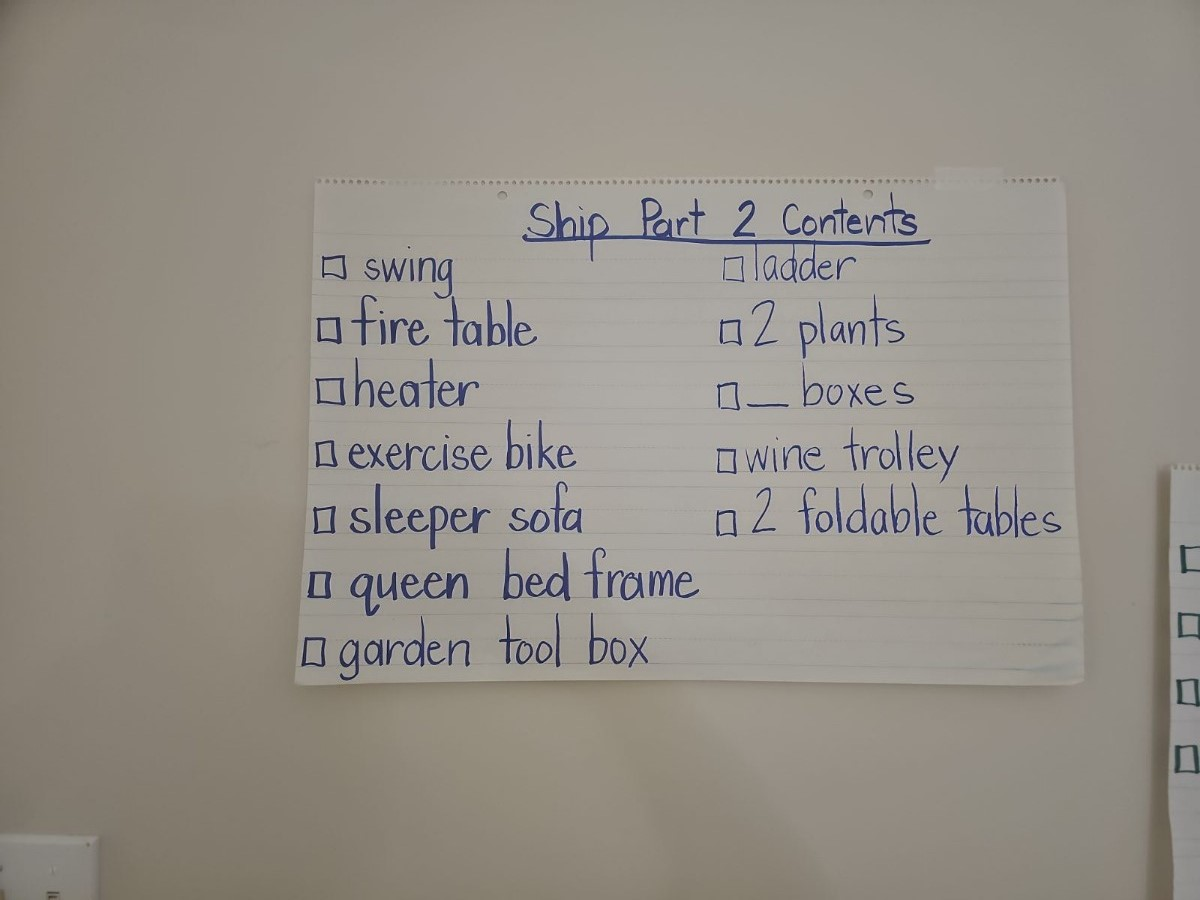 Ship Part 2 Contents
☐ swing
☐ fire table
☐ heater
☐ exercise bike
☐ sleeper sofa
☐ queen bed frame
☐ garden tool box
☐ ladder
☐ 2 plants
☐ __ boxes
☐ wine trolley
☐ 2 foldable tables